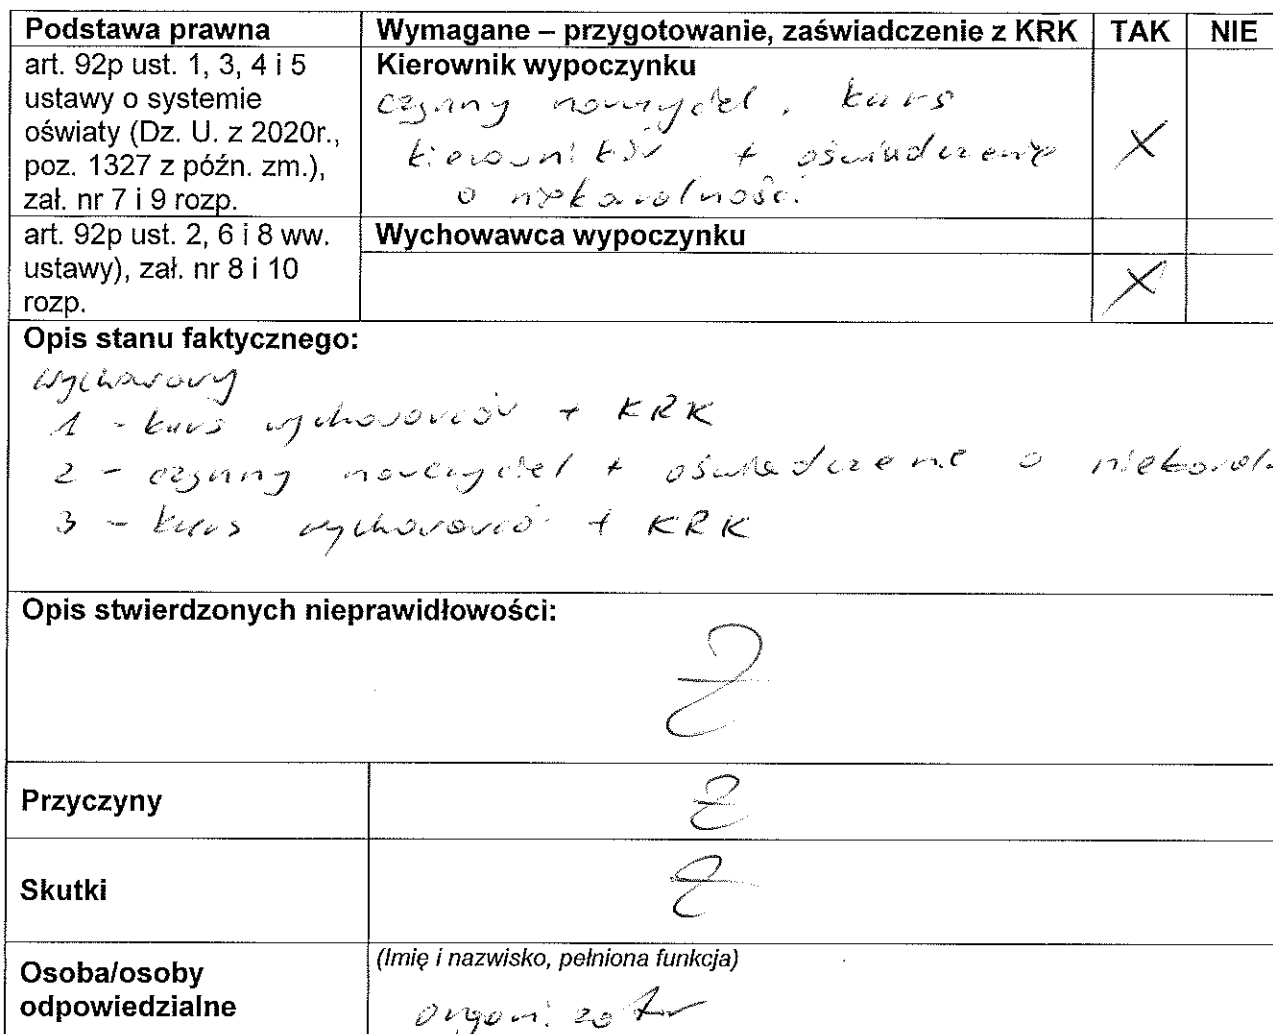 Podstawa prawna
Wymagane – przygotowanie, zaświadczenie z KRK
TAK
NIE
art. 92p ust. 1, 3, 4 i 5
ustawy o systemie
oświaty (Dz. U. z 2020r.,
poz. 1327 z późn. zm.),
zał. nr 7 i 9 rozp.
Kierownik wypoczynku
czynny nauczyciel, kurs
kierowników + oświadczenie
o niekaralności.
X
art. 92p ust. 2, 6 i 8 ww.
ustawy), zał. nr 8 i 10
rozp.
Wychowawca wypoczynku
X
Opis stanu faktycznego:
wychowawcy
1 - kurs wychowawców + KRK
2 - czynny nauczyciel + oświadczenie o niekaral
3 - kurs wychowawców + KRK
Opis stwierdzonych nieprawidłowości:
Przyczyny
Skutki
Osoba/osoby
odpowiedzialne
(Imię i nazwisko, pełniona funkcja)
organizator